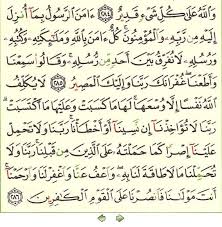 وَٱللَّهُ عَلَىٰ كُلِّ شَىْءٍ قَدِيرٌ ٢٨٤ ءَامَنَ ٱلرَّسُولُ بِمَآ أُنزِلَ
إِلَيْهِ مِن رَّبِّهِۦ وَٱلْمُؤْمِنُونَ كُلٌّ ءَامَنَ بِٱللَّهِ وَمَلَٰٓئِكَتِهِۦ وَكُتُبِهِۦ
وَرُسُلِهِۦ لَا نُفَرِّقُ بَيْنَ أَحَدٍ مِّن رُّسُلِهِۦ وَقَالُوا۟ سَمِعْنَا
وَأَطَعْنَا غُفْرَانَكَ رَبَّنَا وَإِلَيْكَ ٱلْمَصِيرُ ٢٨٥ لَا يُكَلِّفُ
ٱللَّهُ نَفْسًا إِلَّا وُسْعَهَا لَهَا مَا كَسَبَتْ وَعَلَيْهَا مَا ٱكْتَسَبَتْ
رَبَّنَا لَا تُؤَاخِذْنَآ إِن نَّسِينَآ أَوْ أَخْطَأْنَا رَبَّنَا وَلَا تَحْمِلْ
عَلَيْنَآ إِصْرًا كَمَا حَمَلْتَهُۥ عَلَى ٱلَّذِينَ مِن قَبْلِنَا رَبَّنَا وَلَا
تُحَمِّلْنَا مَا لَا طَاقَةَ لَنَا بِهِۦ وَٱعْفُ عَنَّا وَٱغْفِرْ لَنَا وَٱرْحَمْنَآ
أَنتَ مَوْلَىٰنَا فَٱنصُرْنَا عَلَى ٱلْقَوْمِ ٱلْكَٰفِرِينَ ٢٨٦